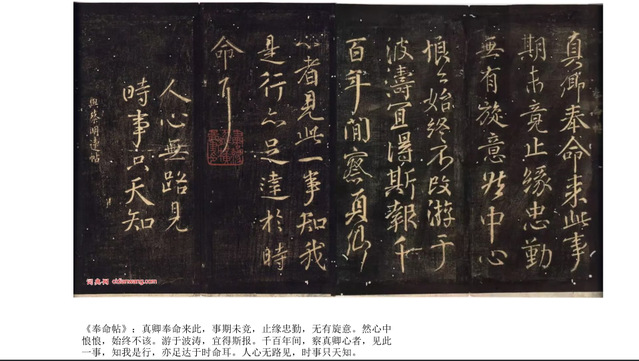 真卿奉命来此事
期未竟止緣忠勤
無有旋意然中心
悢〻始终不改游于
波濤宜得斯報千
百年間察真卿
心者見此一事知我
是行亦足達於時
命耳
人心無路見
時事只天知
與蔡明遠帖
词典网 cidianwang.com
《奉命帖》：真卿奉命来此，事期未竞，止缘忠勤，无有旋意。然心中
悢悢，始终不该。游于波涛，宜得斯报。千百年间，察真卿心者，见此
一事，知我是行，亦足达于时命耳。人心无路见，时事只天知。